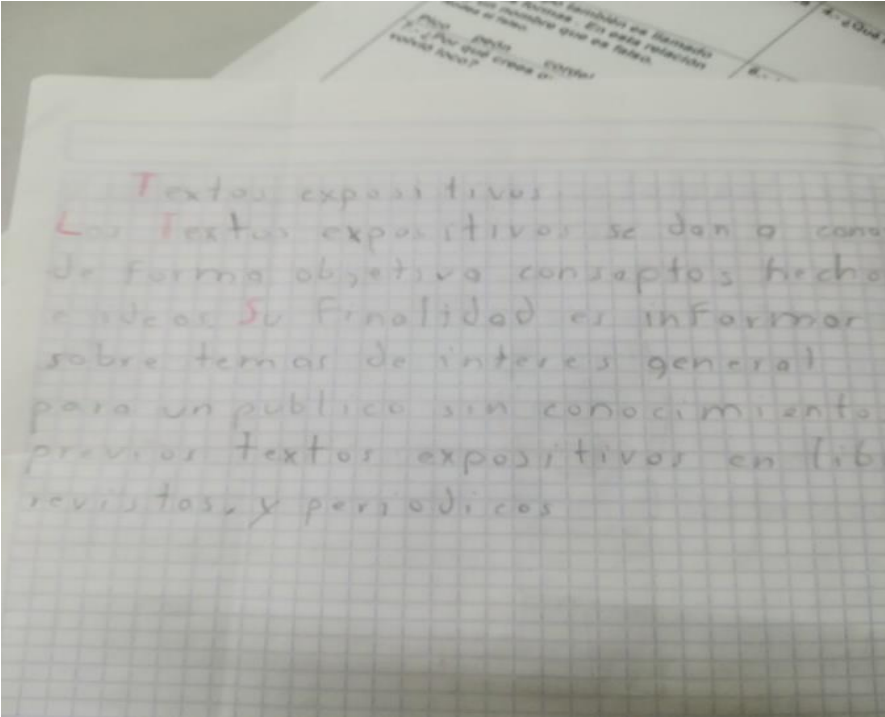 o también es llamado
formas. En esta relación
un nombre que es falso.
pico peón cordel
7.- ¿Por qué crees q
volvió loco?
4.- ¿Qué
8.-
Textos expositivos
Los Textos expositivos se dan a cono
de forma objetiva conseptos hecho
e ideas Su Finalidad es informar
sobre temas de interes general
para un publico sin conocimiento
previos textos expositivos en lib
revistas, y periodicos